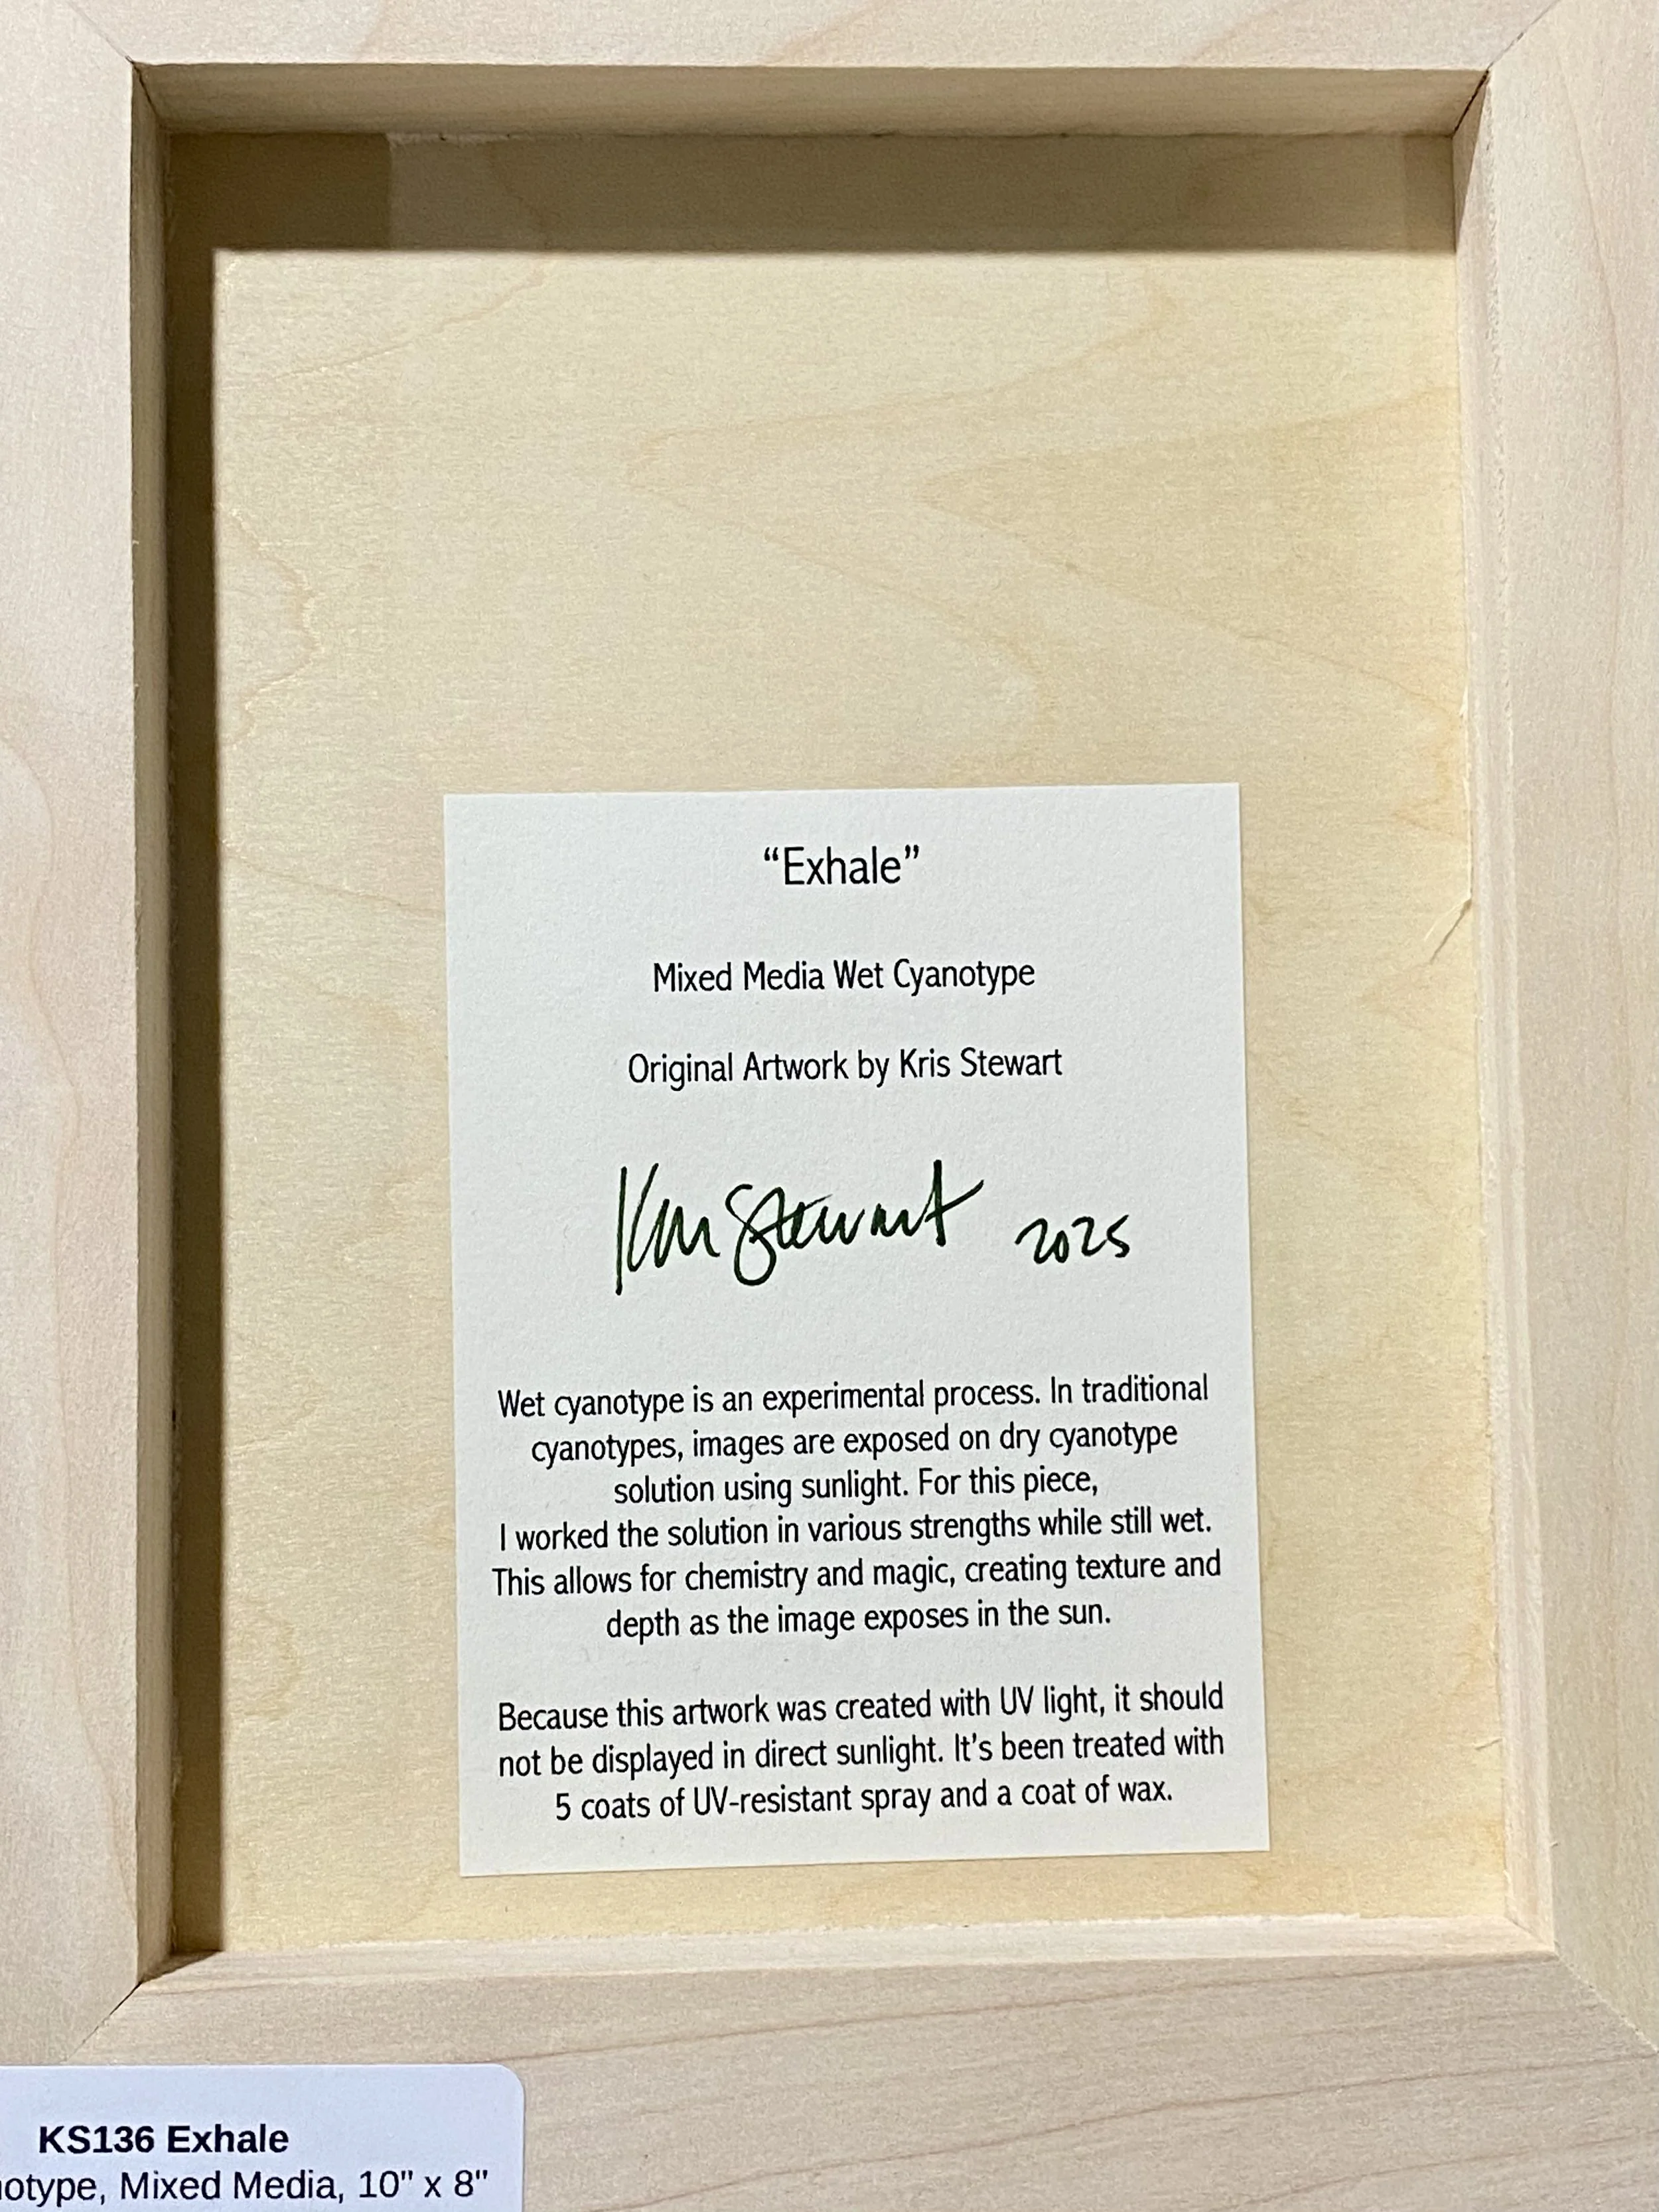 “Exhale”
Mixed Media Wet Cyanotype
Original Artwork by Kris Stewart
Kris Stewart 2025
Wet cyanotype is an experimental process. In traditional
cyanotypes, images are exposed on dry cyanotype
solution using sunlight. For this piece,
I worked the solution in various strengths while still wet.
This allows for chemistry and magic, creating texture and
depth as the image exposes in the sun.
Because this artwork was created with UV light, it should
not be displayed in direct sunlight. It’s been treated with
5 coats of UV-resistant spray and a coat of wax.
KS136 Exhale
otype, Mixed Media, 10" x 8"